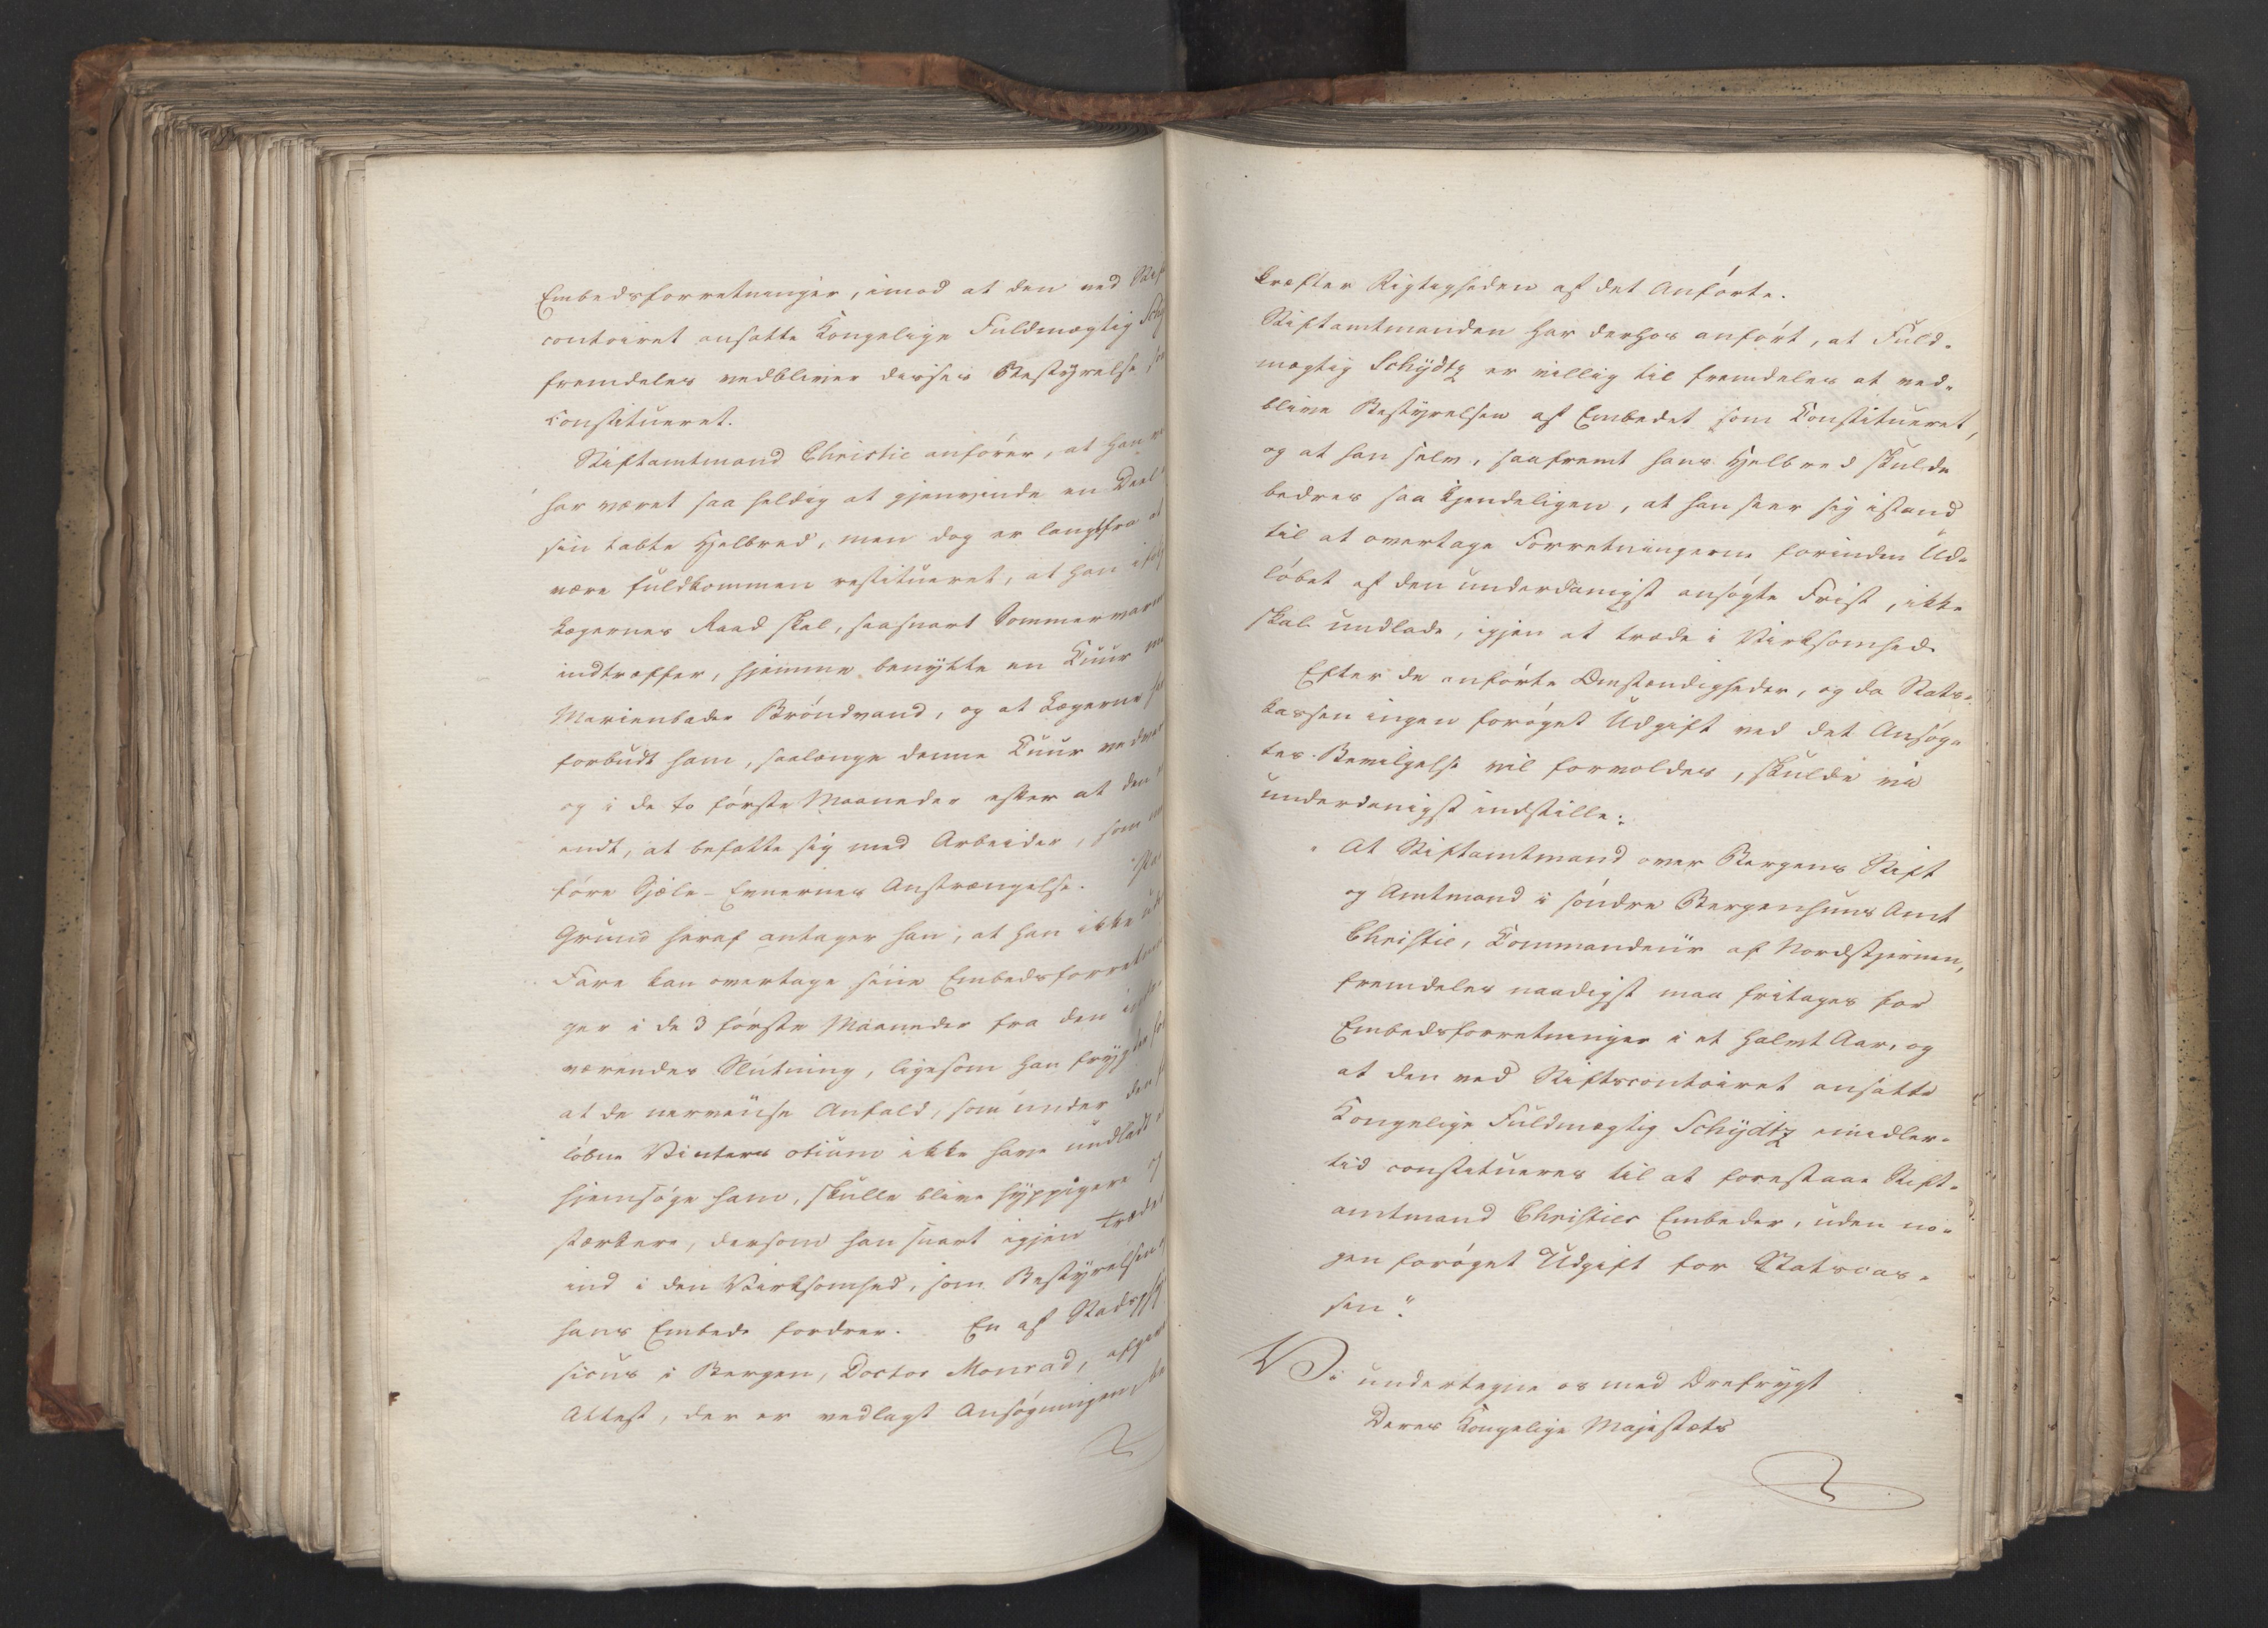 Embedsforretninger, imod at den ved Stift
contoiret ansatte Kongelige Fuldmægtig Schy
fremdeles vedbliver disses Bestyrelse, som
constitueret.
Stiftamtmand Christie anfører, at han vel
har været saa heldig at gjenvinde en Deel
sin tabte Helbred, men dog er langtfra at
være fuldkommen restitueret, at han ifølg
Lægernes Raad skal, saasnart Sommervarm
indtræffer, hjemme benytte en Kuur med
Marienbader Brøndvand, og at Lægerne have
forbudt ham, saalænge denne Kuur vedvarer
og i de to første Maaneder efter at den er
endt, at befatte sig med Arbeider, som med
føre Sjæls-Evnernes Anstrængelse. Paa
Grund heraf antager han, at han ikke uden
Fare kan overtage sine Embedsforretnin
ger i de 3 første Maaneder fra den inde
værendes Slutning, ligesom han frygter for
at de nerveuse Anfald, som under den for
løbne Vinters otium ikke have undladt at
hjemsøge ham, skulle blive hyppigere og
stærkere, dersom han snart igjen træder
ind i den Virksomhed, som Bestyrelsen af
hans Embede fordrer. En af Stadsphy
sicus i Bergen, Doctor Monrad, afgiven
Attest, der er vedlagt Ansøgningen, be
kræfter Rigtigheden af det Anførte.
Stiftamtmanden har derhos anført, at Fuld-
mægtig Schydtz er villig til fremdeles at ved-
blive Bestyrelsen af Embedet som Constitueret,
og at han selv, saafremt hans Helbred skulde
bedres saa kjendeligen, at han seer sig istand
til at overtage Forretningerne forinden Ud-
løbet af den underdanigst ansøgte Frist, ikke
skal undlade, igjen at træde i Virksomhed.
Efter de anførte Omstændigheder, og da Stats-
kassen ingen forøget Udgift ved det Ansøg-
tes Bevilgelse vil forvoldes, skulde vi
underdanigst indstille:
"At Stiftamtmand over Bergens Stift
og Amtmand i søndre Bergenhuus Amt
Christie, Commandeur af Nordstjernen,
fremdeles naadigst maa fritages for
Embedsforretninger i et halvt Aar, og
at den ved Stiftscontoiret ansatte
Kongelige Fuldmægtig Schydtz imidler-
tid constitueres til at forestaae Stift-
amtmand Christies Embeder, uden no-
gen forøget Udgift for Statscas-
sen."
Vi undertegne os med Ærefrygt
Deres Kongelige Majestæts